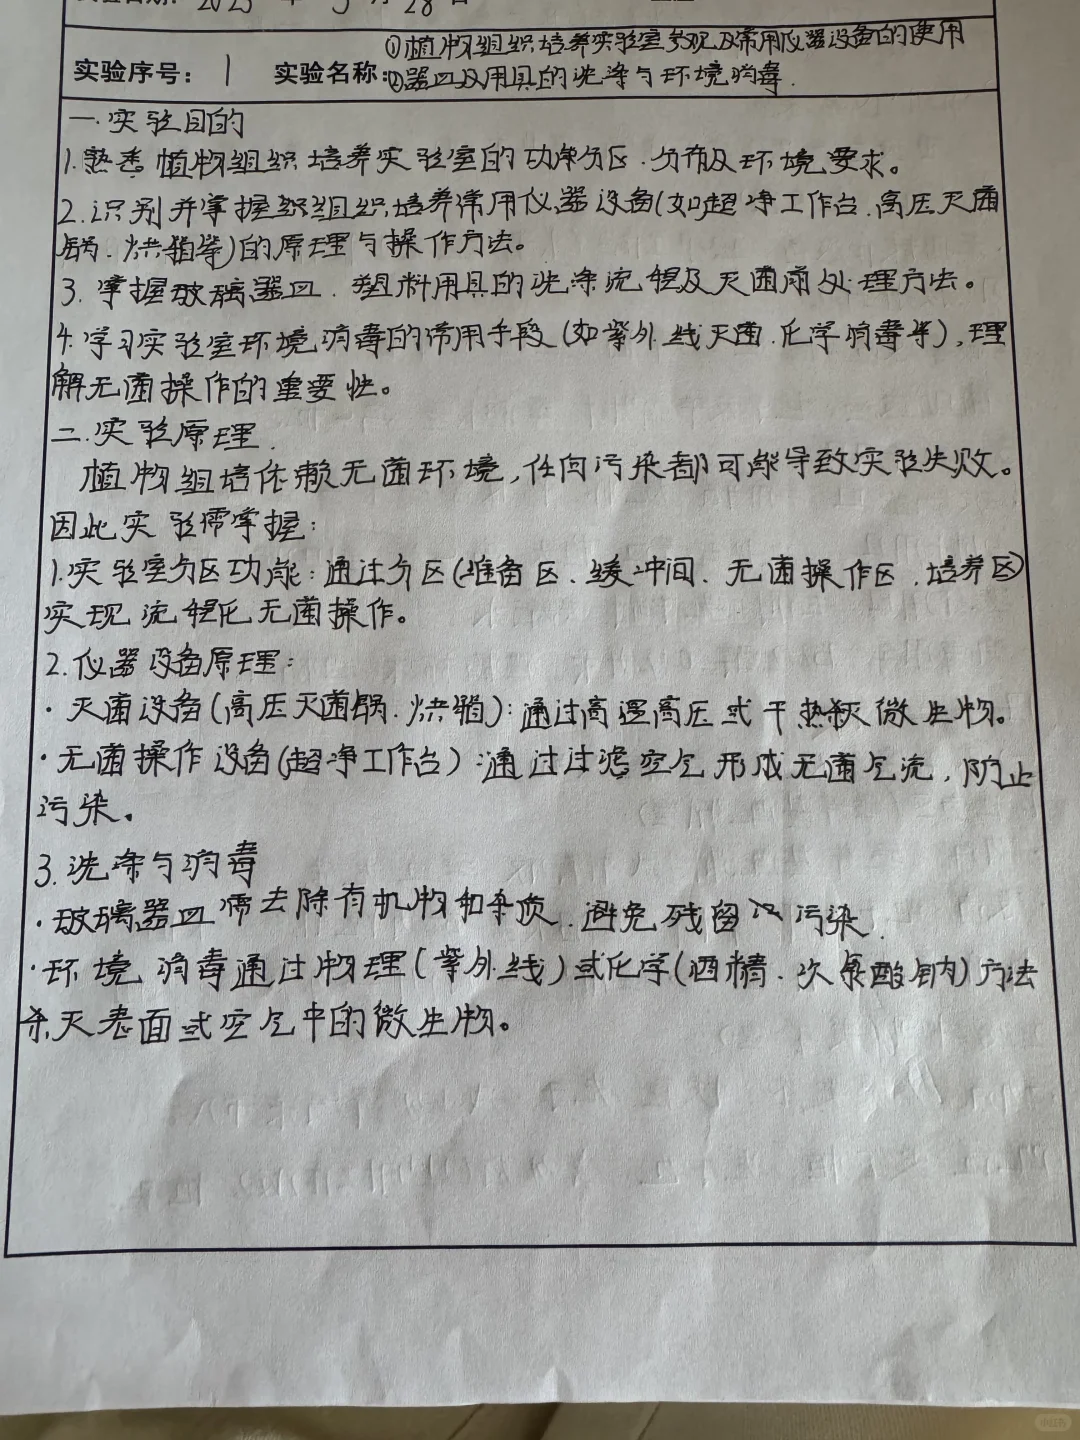 2025 年 5 月 28 日
①植物组织培养实验室参观及常用仪器设备的使用
实验序号： 1 实验名称：②器皿及用具的洗涤与环境消毒.
一.实验目的
1.熟悉植物组织培养实验室的功能分区、分布及环境要求。
2.识别并掌握织组织培养常用仪器设备(如超净工作台、高压灭菌
锅、烘箱等)的原理与操作方法。
3.掌握玻璃器皿、塑料用具的洗涤流程及灭菌前处理方法。
4.学习实验室环境消毒的常用手段(如紫外线灭菌、化学消毒等)，理
解无菌操作的重要性。
二.实验原理.
植物组培依赖无菌环境，任何污染都可能导致实验失败。
因此实验需掌握：
1.实验室分区功能：通过分区(准备区、缓冲间、无菌操作区、培养区)
实现流程化无菌操作。
2.仪器设备原理：
·灭菌设备(高压灭菌锅、烘箱)：通过高温高压或干热杀灭微生物。
·无菌操作设备(超净工作台)：通过过滤空气形成无菌气流，防止
污染。
3.洗涤与消毒
·玻璃器皿需去除有机物和杂质、避免残留污染.
·环境消毒通过物理(紫外线)或化学(酒精、次氯酸钠)方法
杀灭表面或空气中的微生物。
小红书